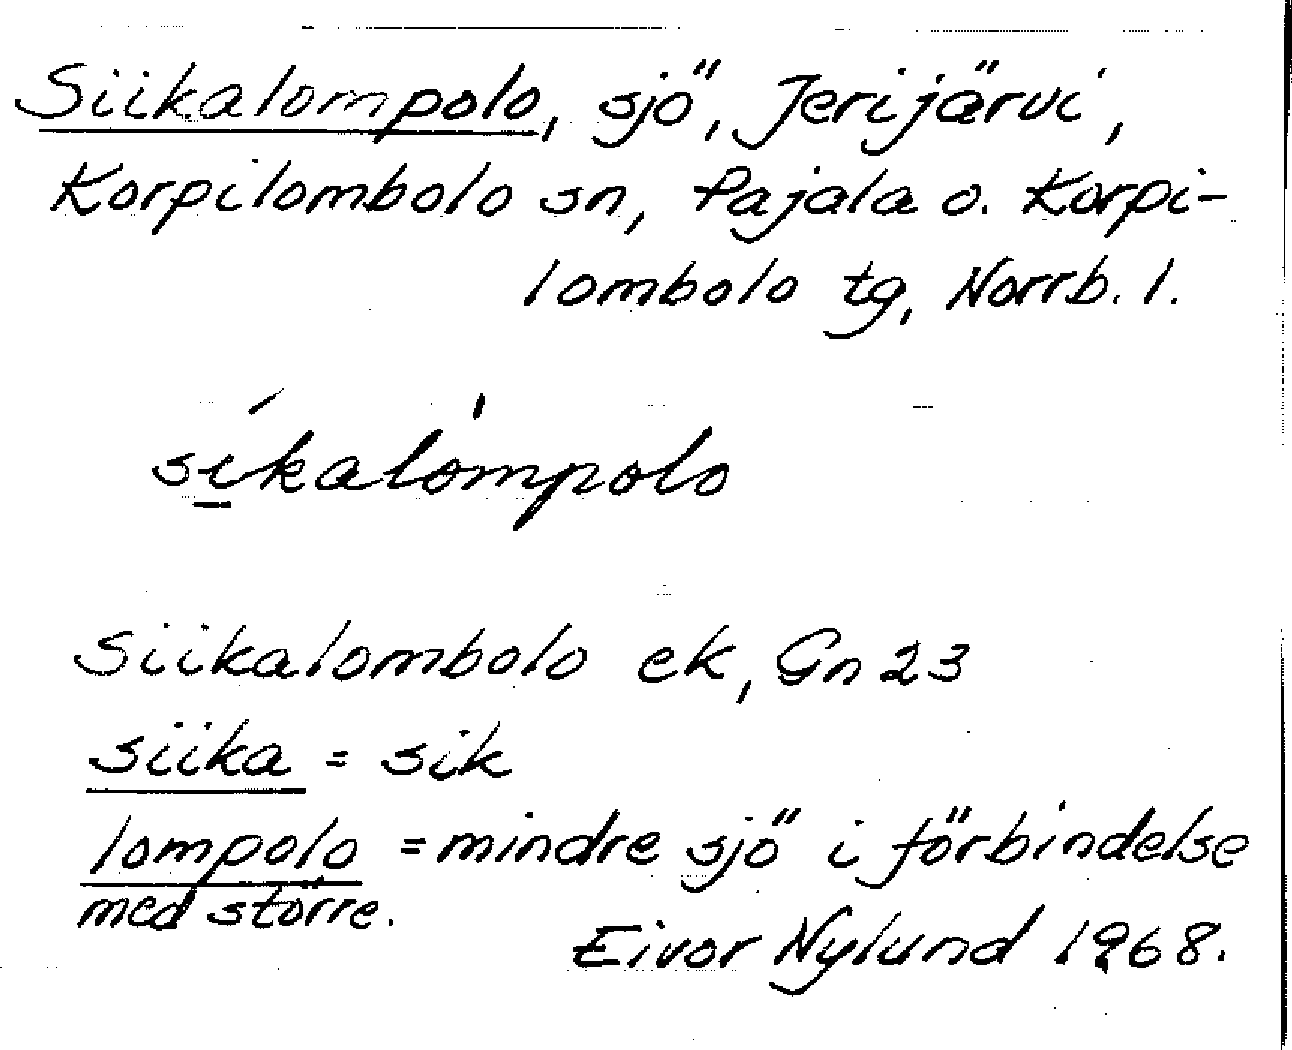 Siikalompolo, sjö, Jerijärvi,
Korpilombolo sn, Pajala o. Korpi-
lombolo tg, Norrb. l.
síkalómpolo
Siikalombolo ek, Gn 23
siika = sik
lompolo = mindre sjö i förbindelse
med större.
Eivor Nylund 1968.